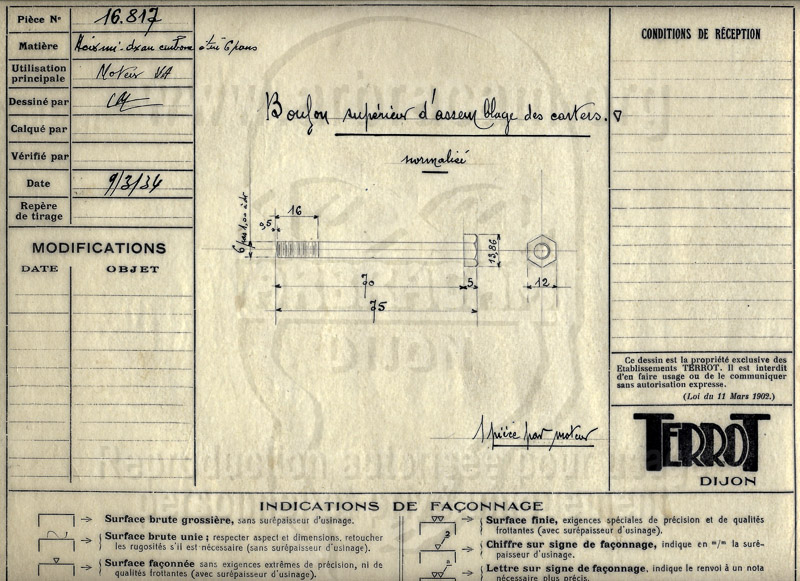 Pièce Nº 16.817
Matière
Utilisation principale Moteur VA
Dessiné par
Calqué par
Vérifié par
Date 9/3/34
Repère de tirage
MODIFICATIONS
DATE OBJET
Boulon supérieur d'assemblage des carters.
normalisé
16
9,5
70
5
75
13,86
12
1 pièce par moteur
CONDITIONS DE RÉCEPTION
Ce dessin est la propriété exclusive des
Etablissements TERROT. Il est interdit
d'en faire usage ou de le communiquer
sans autorisation expresse.
(Loi du 11 Mars 1902.)
TERROT
DIJON
INDICATIONS DE FAÇONNAGE
Surface brute grossière, sans surépaisseur d'usinage.
Surface brute unie; respecter aspect et dimensions, retoucher
les rugosités s'il est nécessaire (sans surépaisseur d'usinage).
Surface façonnée sans exigences extrêmes de précision, ni de
qualités frottantes (avec surépaisseur d'usinage).
Surface finie, exigences spéciales de précision et de qualités
frottantes (avec surépaisseur d'usinage).
Chiffre sur signe de façonnage, indique en m/m la suré-
paisseur d'usinage.
Lettre sur signe de façonnage, indique le renvoi à un nota
nécessaire plus précis.